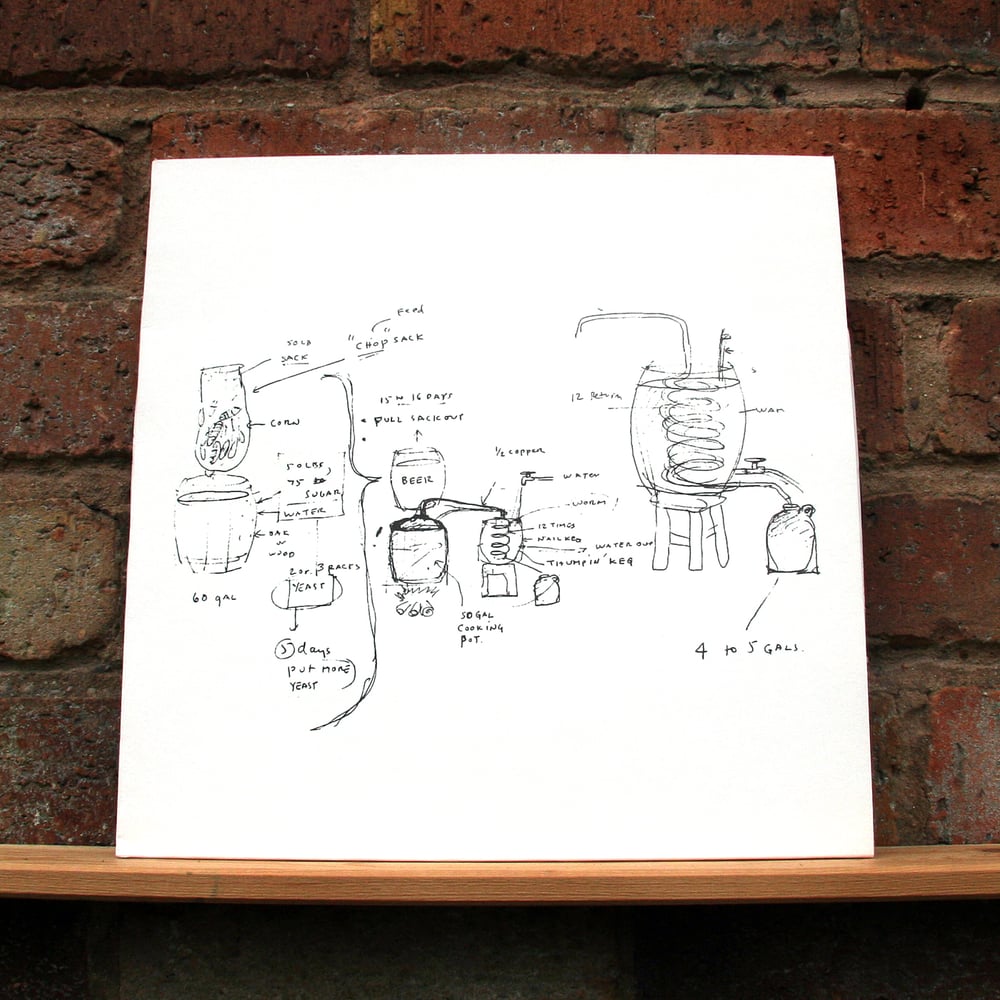 FEED
"CHOP" SACK
50 LB
SACK
CORN
50 LBS,
75
SUGAR
WATER
OAK
WOOD
60 GAL
2 or 3
YEAST
5 days
PUT MORE
YEAST
15 16 DAYS
PULL SACK OUT
BEER
1/2 COPPER
WATER
WORM!
12 TIMES
NAIL KEG
WATER OUT
THUMPIN' KEG
50 GAL
COOKING
POT.
12 Return
4 to 5 GALS.